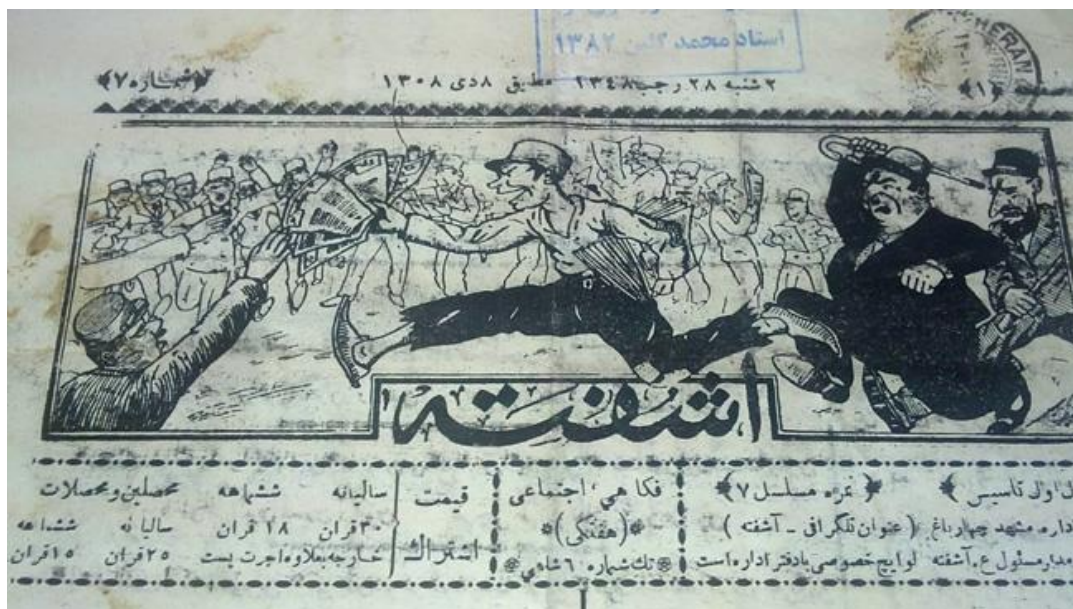 استاد محمد گلبن ۱۳۸۲
HERAN
﴿شماره ۷﴾
۲ شنبه ۲۸ رجب ۱۳۴۸ مطابق ۸ دی ۱۳۰۸
﴿۱﴾
اشفته
ل اول تاسیس ﴾ ﴿ نمره مسلسل ۷ ﴾
داره مشهد چهارباغ ( عنوان تلگرافی ـ آشفته )
مدار مسئول ع. آشفته لوایح خصوصی با دفتر اداره است
فکاهی، اجتماعی
*(هفتگی)*
* تك شماره ۶ شاهی *
قیمت
اشتراك
سالیانه ششماهه محصلین و محصلات
۳۰ قران ۱۸ قران سالیانه ششماهه
خارجه بعلاوه اجرت پست ۲۵ قران ۱۵ قران